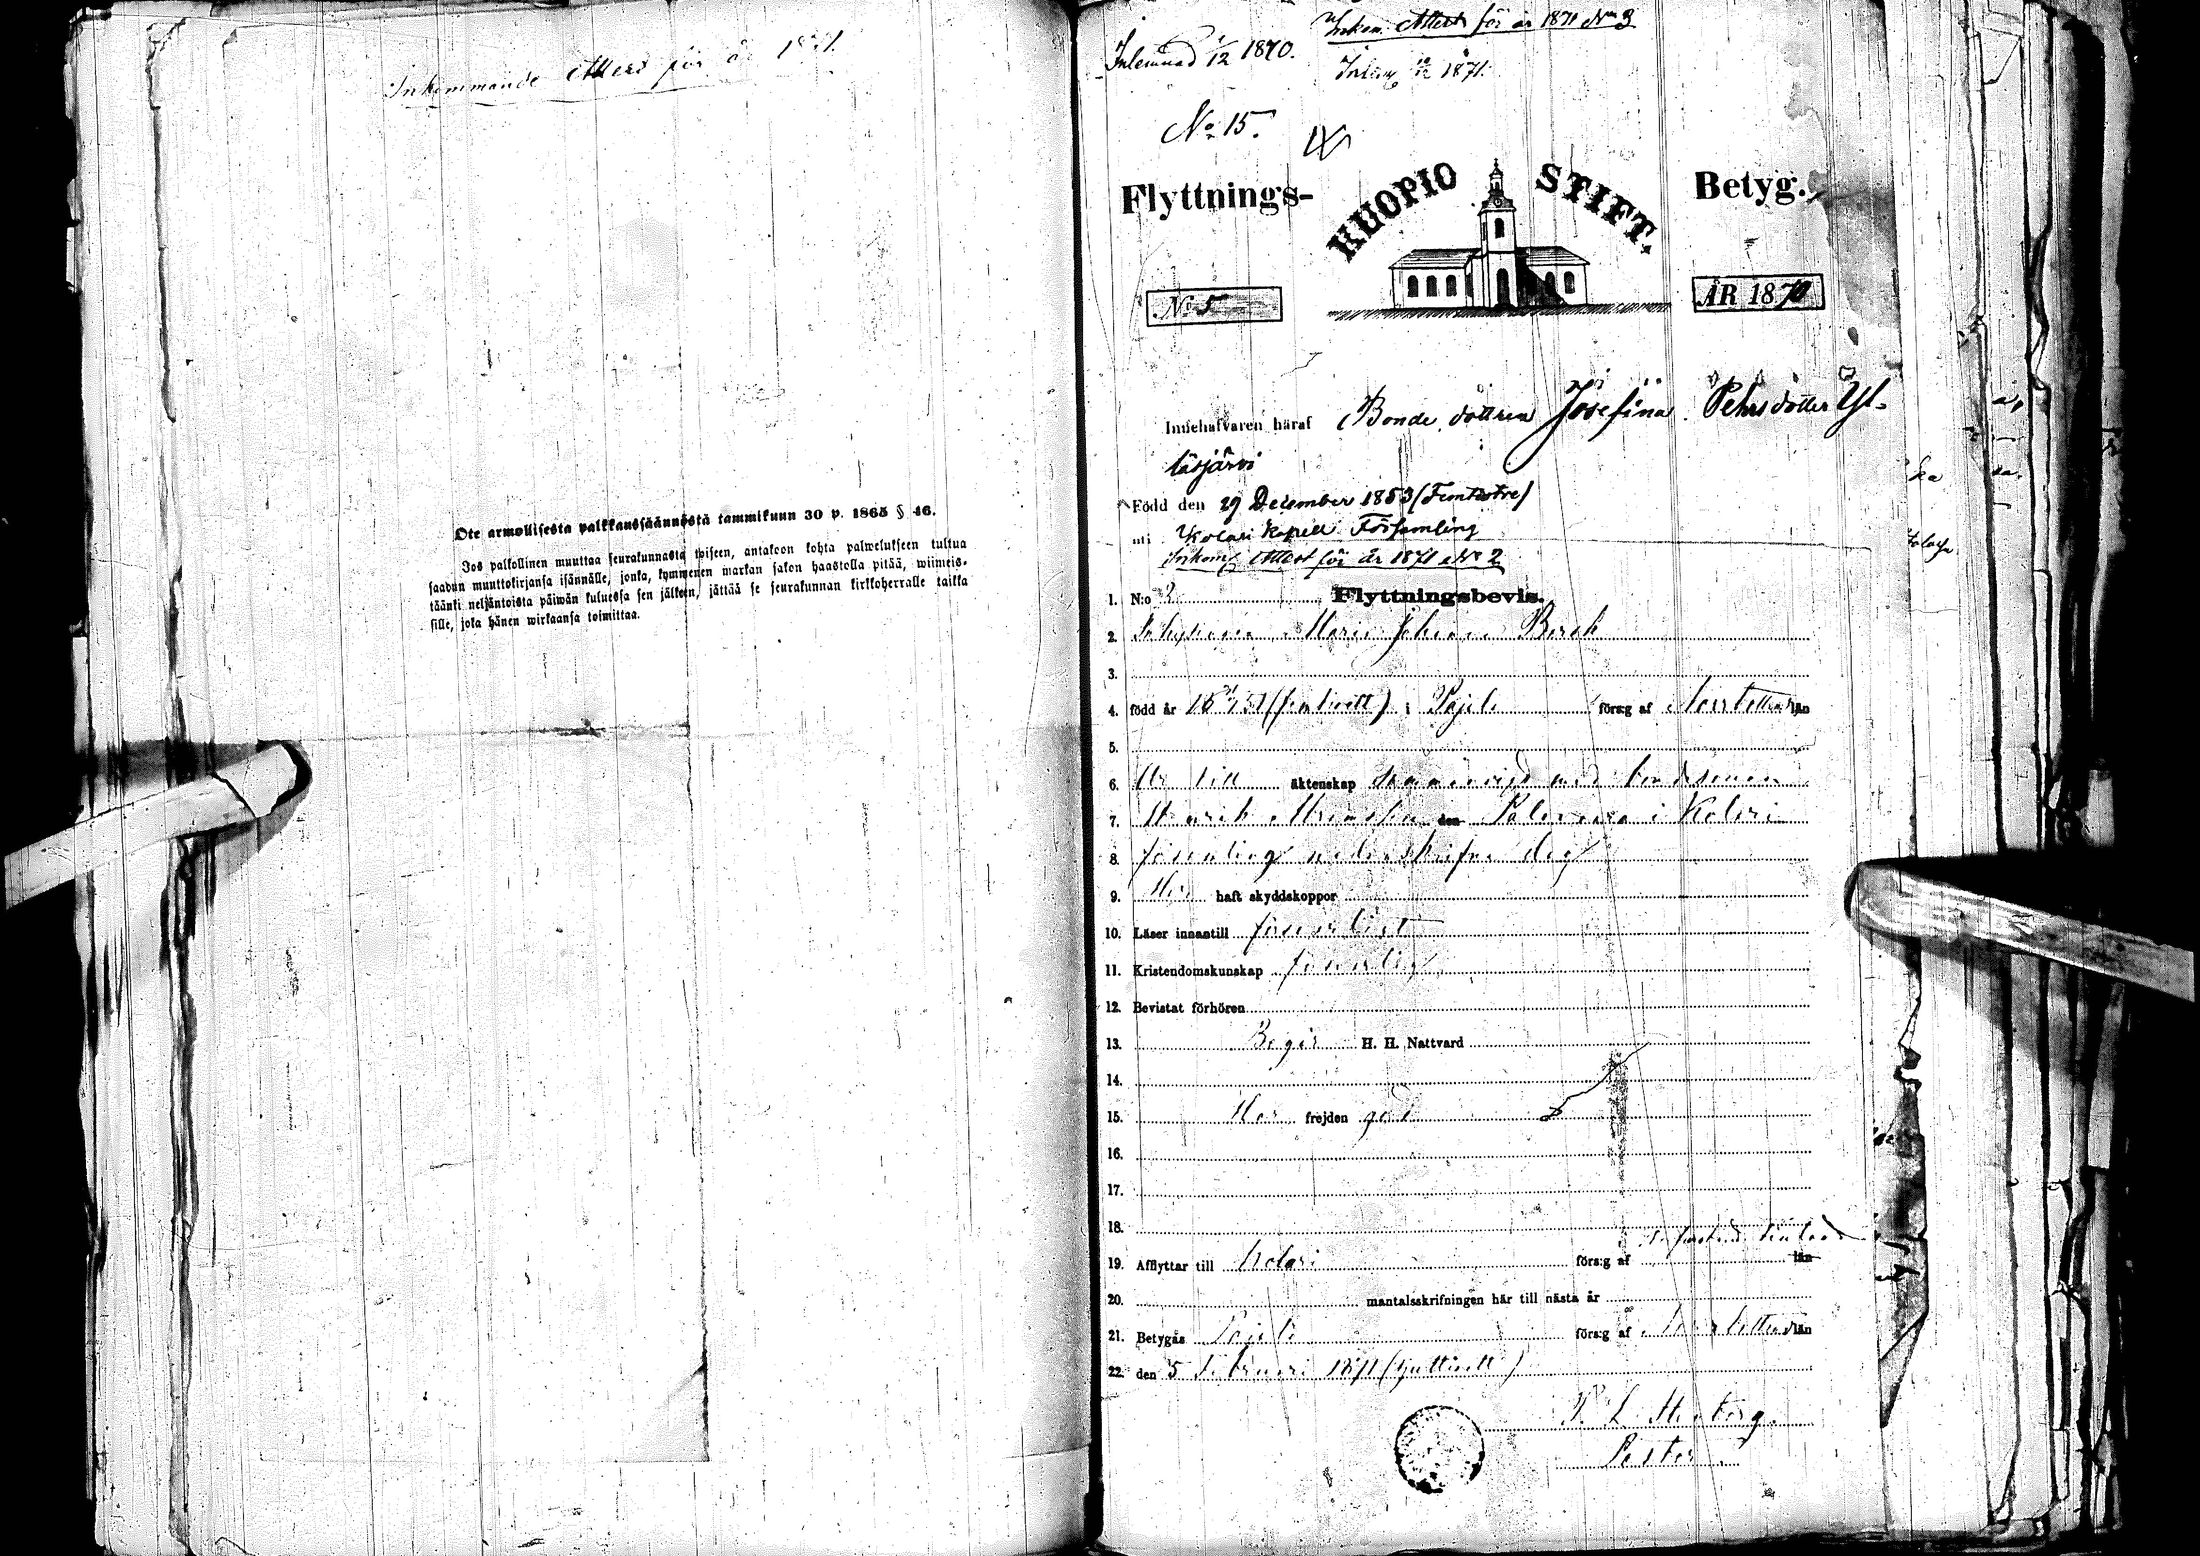 Inkommande Attest för år 1871.
Ote armollisesta palkkaussäännöstä tammikuun 30 p. 1865 § 46.
Jos palkollinen muuttaa seurakunnasta toiseen, antakoon kohta palwelukseen tultua
saadun muuttokirjansa isännälle, jonka, kymmenen markan sakon haastolla pitää, wiimeis-
täänki neljäntoista päiwän kuluessa sen jälkeen, jättää se seurakunnan kirkkoherralle taikka
sille, joka hänen wirkaansa toimittaa.
Inkom. Attest för år 1871 No 3
Inlemnad 1/12 1870.
1871.
No 15.
Flyttnings- KUOPIO STIFT. Betyg.
No 5 ÅR 1870
Innehafvaren häraf Bonde dottren Josefina Pehrsdotter Yl-
läsjärvi
Född den 29 December 1853 (Femtiotre)
uti Kolari Kapell Församling
Inkom. Attest för år 1871 No 2
1. N:o 2 Flyttningsbevis.
2. Maria Johanna
3.
4. född år i Pajala förs:g af Norrbottens län
5.
6. Är till äktenskap med bondesonen
7. Henrik den i Kolari
8. församling dag
9. Har haft skyddskoppor
10. Läser innantill försvarligt
11. Kristendomskunskap försvarlig
12. Bevistat förhören
13. Begår H. H. Nattvard
14.
15. Har frejden god
16.
17.
18.
19. Afflyttar till Kolari förs:g af Finland län
20. mantalsskrifningen här till nästa år
21. Betygas Pajala förs:g af Norrbottens län
22. den 5 Februari 1871 (sjuttioett)
P. L.
Pastor.